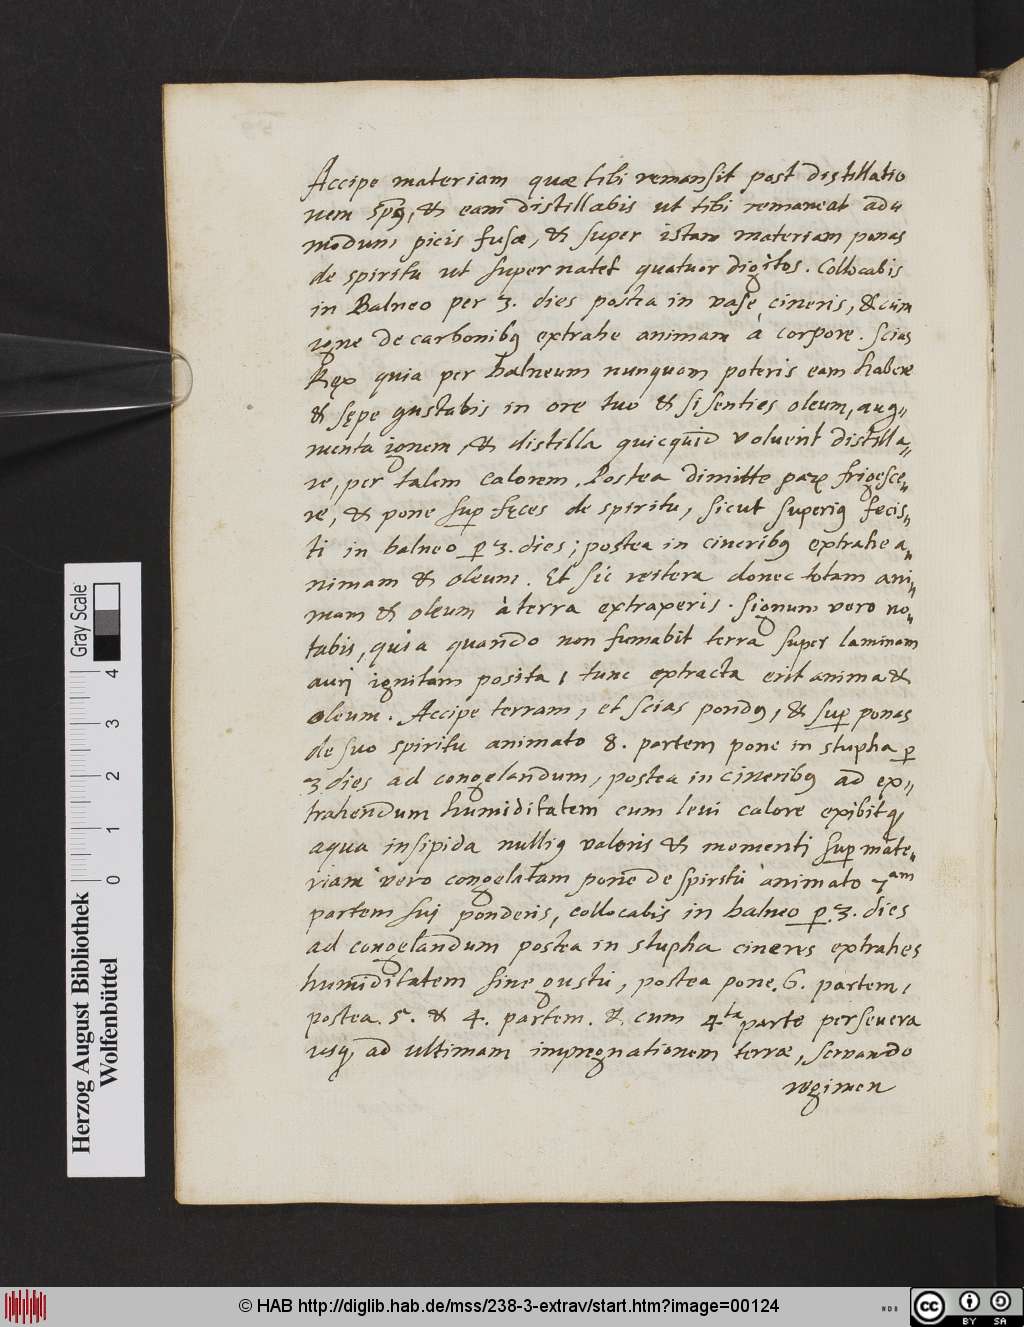 Accipe materiam quæ tibi remansit post distillatio
nem spūs, & eam distillabis ut tibi remaneat ad
modum picis fusæ, & super istam materiam ponas
de spiritu ut supernatet quatuor digitos. Collocabis
in Balneo per 3. dies postea in vase cineris, & cum
igne de carbonibꝰ extrahe animam à corpore. Scias
Rex quia per balneum nunquam poteris eam habere
& sępe gustabis in ore tuo & si senties oleum, aug-
menta ignem, & distilla quicquid voluerit distilla-
re, per talem calorem. Postea dimitte parū frigesce-
re, & pone suꝑ fęces de spiritu, sicut superiꝰ fecis-
ti in balneo ꝑ 3. dies; postea in cineribꝰ extrahe a-
nimam & oleum. Et sic reitera donec totam ani-
mam & oleum à terra extraxeris. Signum vero no-
tabis, quia quando non fumabit terra super laminam
aurj ignitam posita, tunc extracta erit anima &
oleum. Accipe terram, et scias pondꝰ, & suꝑ ponas
de suo spiritu animato 8. partem pone in stupha ꝑ
3 dies ad congelandum, postea in cineribꝰ ad ex-
trahendum humiditatem cum leui calore exibitqꝫ
aqua insipida nulliꝰ valoris & momenti suꝑ mate-
riam vero congelatam pone de spiritu animato 7am
partem suj ponderis, collocabis in balneo ꝑ 3. dies
ad congelandum postea in stupha cineris extrahes
humiditatem sine gustu, postea pone. 6. partem,
postea. 5. & 4. partem. & cum 4ta parte perseuera
usqꝫ ad ultimam imprægnationem terræ, seruando
regimen
Herzog August Bibliothek
Wolfenbüttel
0 1 2 3 4
Gray Scale
© HAB http://diglib.hab.de/mss/238-3-extrav/start.htm?image=00124
cc BY SA